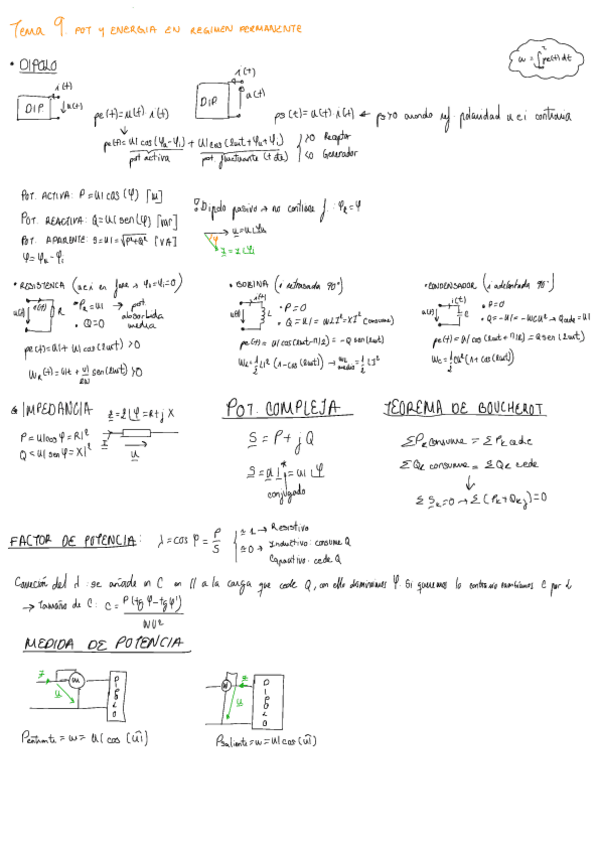 Tema 9. POT Y ENERGIA EN REGIMEN PERMANENTE
w = ∫ pe(t) dt
• DIPOLO
i(t)
DIP
u(t)
pe(t) = u(t) · i(t)
i(t)
DIP
u(t)
ps(t) = u(t) · i(t) ← ps>0 cuando ref. polaridad u e i contraria
pe(t) = UI cos(φu-φi) + UI cos(2wt + φu + φi)
pot activa
pot fluctuante
>0 Receptor
<0 Generador
POT. ACTIVA: P = UI cos(φ) [W]
POT. REACTIVA: Q = UI sen(φ) [var]
POT. APARENTE: S = UI = √P²+Q² [VA]
φ = φu - φi
Dipolo pasivo → no contiene
• RESISTENCIA (u e i en fase → φu-φi=0)
i(t)
u(t)
R
• PR = UI → pot. absorbida media
• Q = 0
pe(t) = UI + UI cos(2wt) > 0
WR(t) = UIt + UI/2W sen(2wt) > 0
• BOBINA (i retrasada 90°)
i(t)
u(t)
L
• P = 0
• Q = UI = WLI² = XI² (consume)
pe(t) = UI cos(2wt - π/2) = -Q sen(2wt)
WL = 1/2 LI² (1 - cos(2wt)) → WL media = 1/2 LI²
• CONDENSADOR (i adelantada 90°)
i(t)
u(t)
C
• P = 0
• Q = -UI = -WCU² → Qcede = UI
pe(t) = UI cos(2wt + π/2) = Q sen(2wt)
WC = 1/2 CU² (1 + cos(2wt))
IMPEDANCIA
Z = Z∠φ = R + jX
P = UI cos φ = RI²
Q = UI sen φ = XI²
I
U
POT. COMPLEJA
S = P + jQ
S = U I* = UI∠φ
conjugado
TEOREMA DE BOUCHEROT
ΣPk consume = ΣPk cede
ΣQk consume = ΣQk cede
ΣSk = 0 → Σ(Pk + Qkj) = 0
FACTOR DE POTENCIA: λ = cos φ = P/S
≈ 1 → Resistivo
≈ 0 → Inductivo: consume Q
Capacitivo: cede Q
Corrección del λ: se añade un C en // a la carga que cede Q, con ello disminuimos φ. Si queremos lo contrario cambiamos C por L
→ Tamaño de C: C = P(tg φ - tg φ')/WU²
MEDIDA DE POTENCIA
I
W
U
DIPOLO
Pentrante = w = UI cos(ûi)
W
I
U
DIPOLO
Psaliente = w = UI cos(ûi)